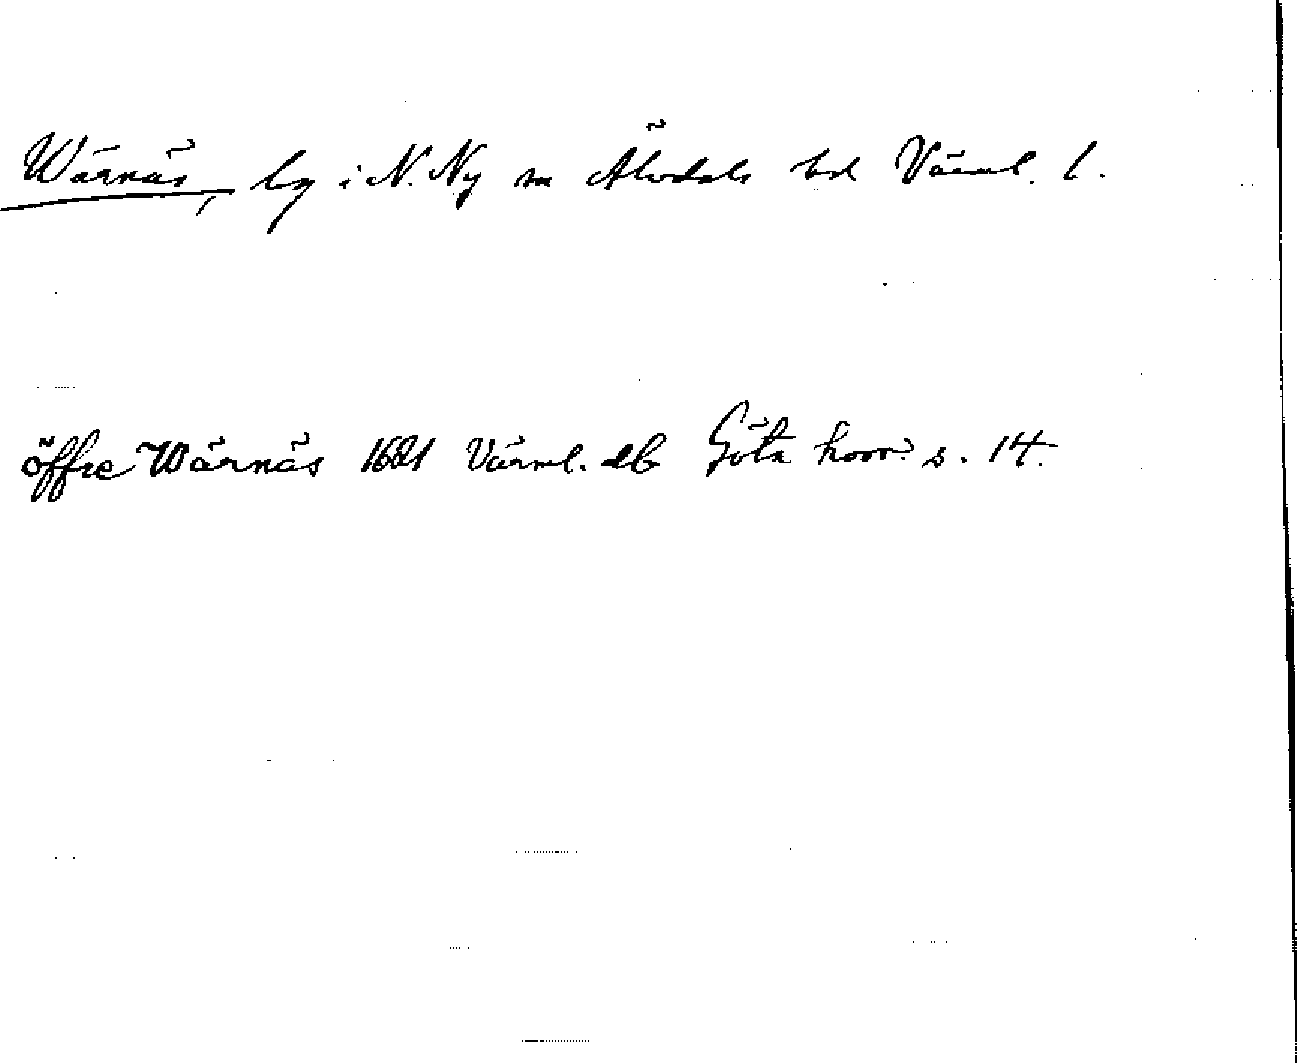 Wärnäs, by i N. Ny sn Älvdals hd Värml. l.
öffre Wärnäs 1681 Värml. db Göta hovr. s. 14.